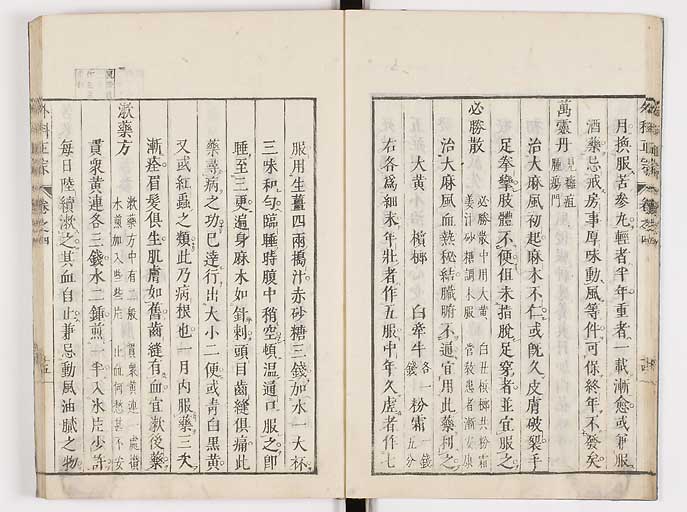 月換服苦參光輕者半年重者一載漸愈或兼服
酒藥忌戒房事厚味動風等件可保終年不發矣
萬靈丹
見癰疽
腫瘍門
治大麻風初起麻木不仁或既久皮膚破裂手
足拳攣肢體不便但未指脫足穿者並宜服之
必勝散
必勝散中用大黃
白丑檳榔共粉霜
姜汁砂糖調木服
治大麻風血熱秘結臟腑不通宜用此藥利之
大黃
檳榔
白牽牛
各一錢
粉霜
一錢五分
右各為細末年壯者作五服中年久虛者作七
外科正宗
卷之四
服用生薑四兩搗汁赤砂糖三錢加水一大杯
三味和勻臨睡時腹中稍空頓溫通口服之即
睡至三更遍身麻木如針刺頭目齒縫俱痛此
藥尋病之功已達行出大小二便或青白黑黃
又或紅蟲之類此乃病根也一月內服藥三次
漸痊眉髮俱生肌膚如舊齒縫有血宜漱後藥
漱藥方
漱藥方中有
貫眾黃連一處攢
水煎加入些些片
止血何愁甚不安
貫眾黃連各三錢水二鍾煎一半入冰片少許
每日陸續漱之其血自止兼忌動風油膩之物
外科正宗
卷之四